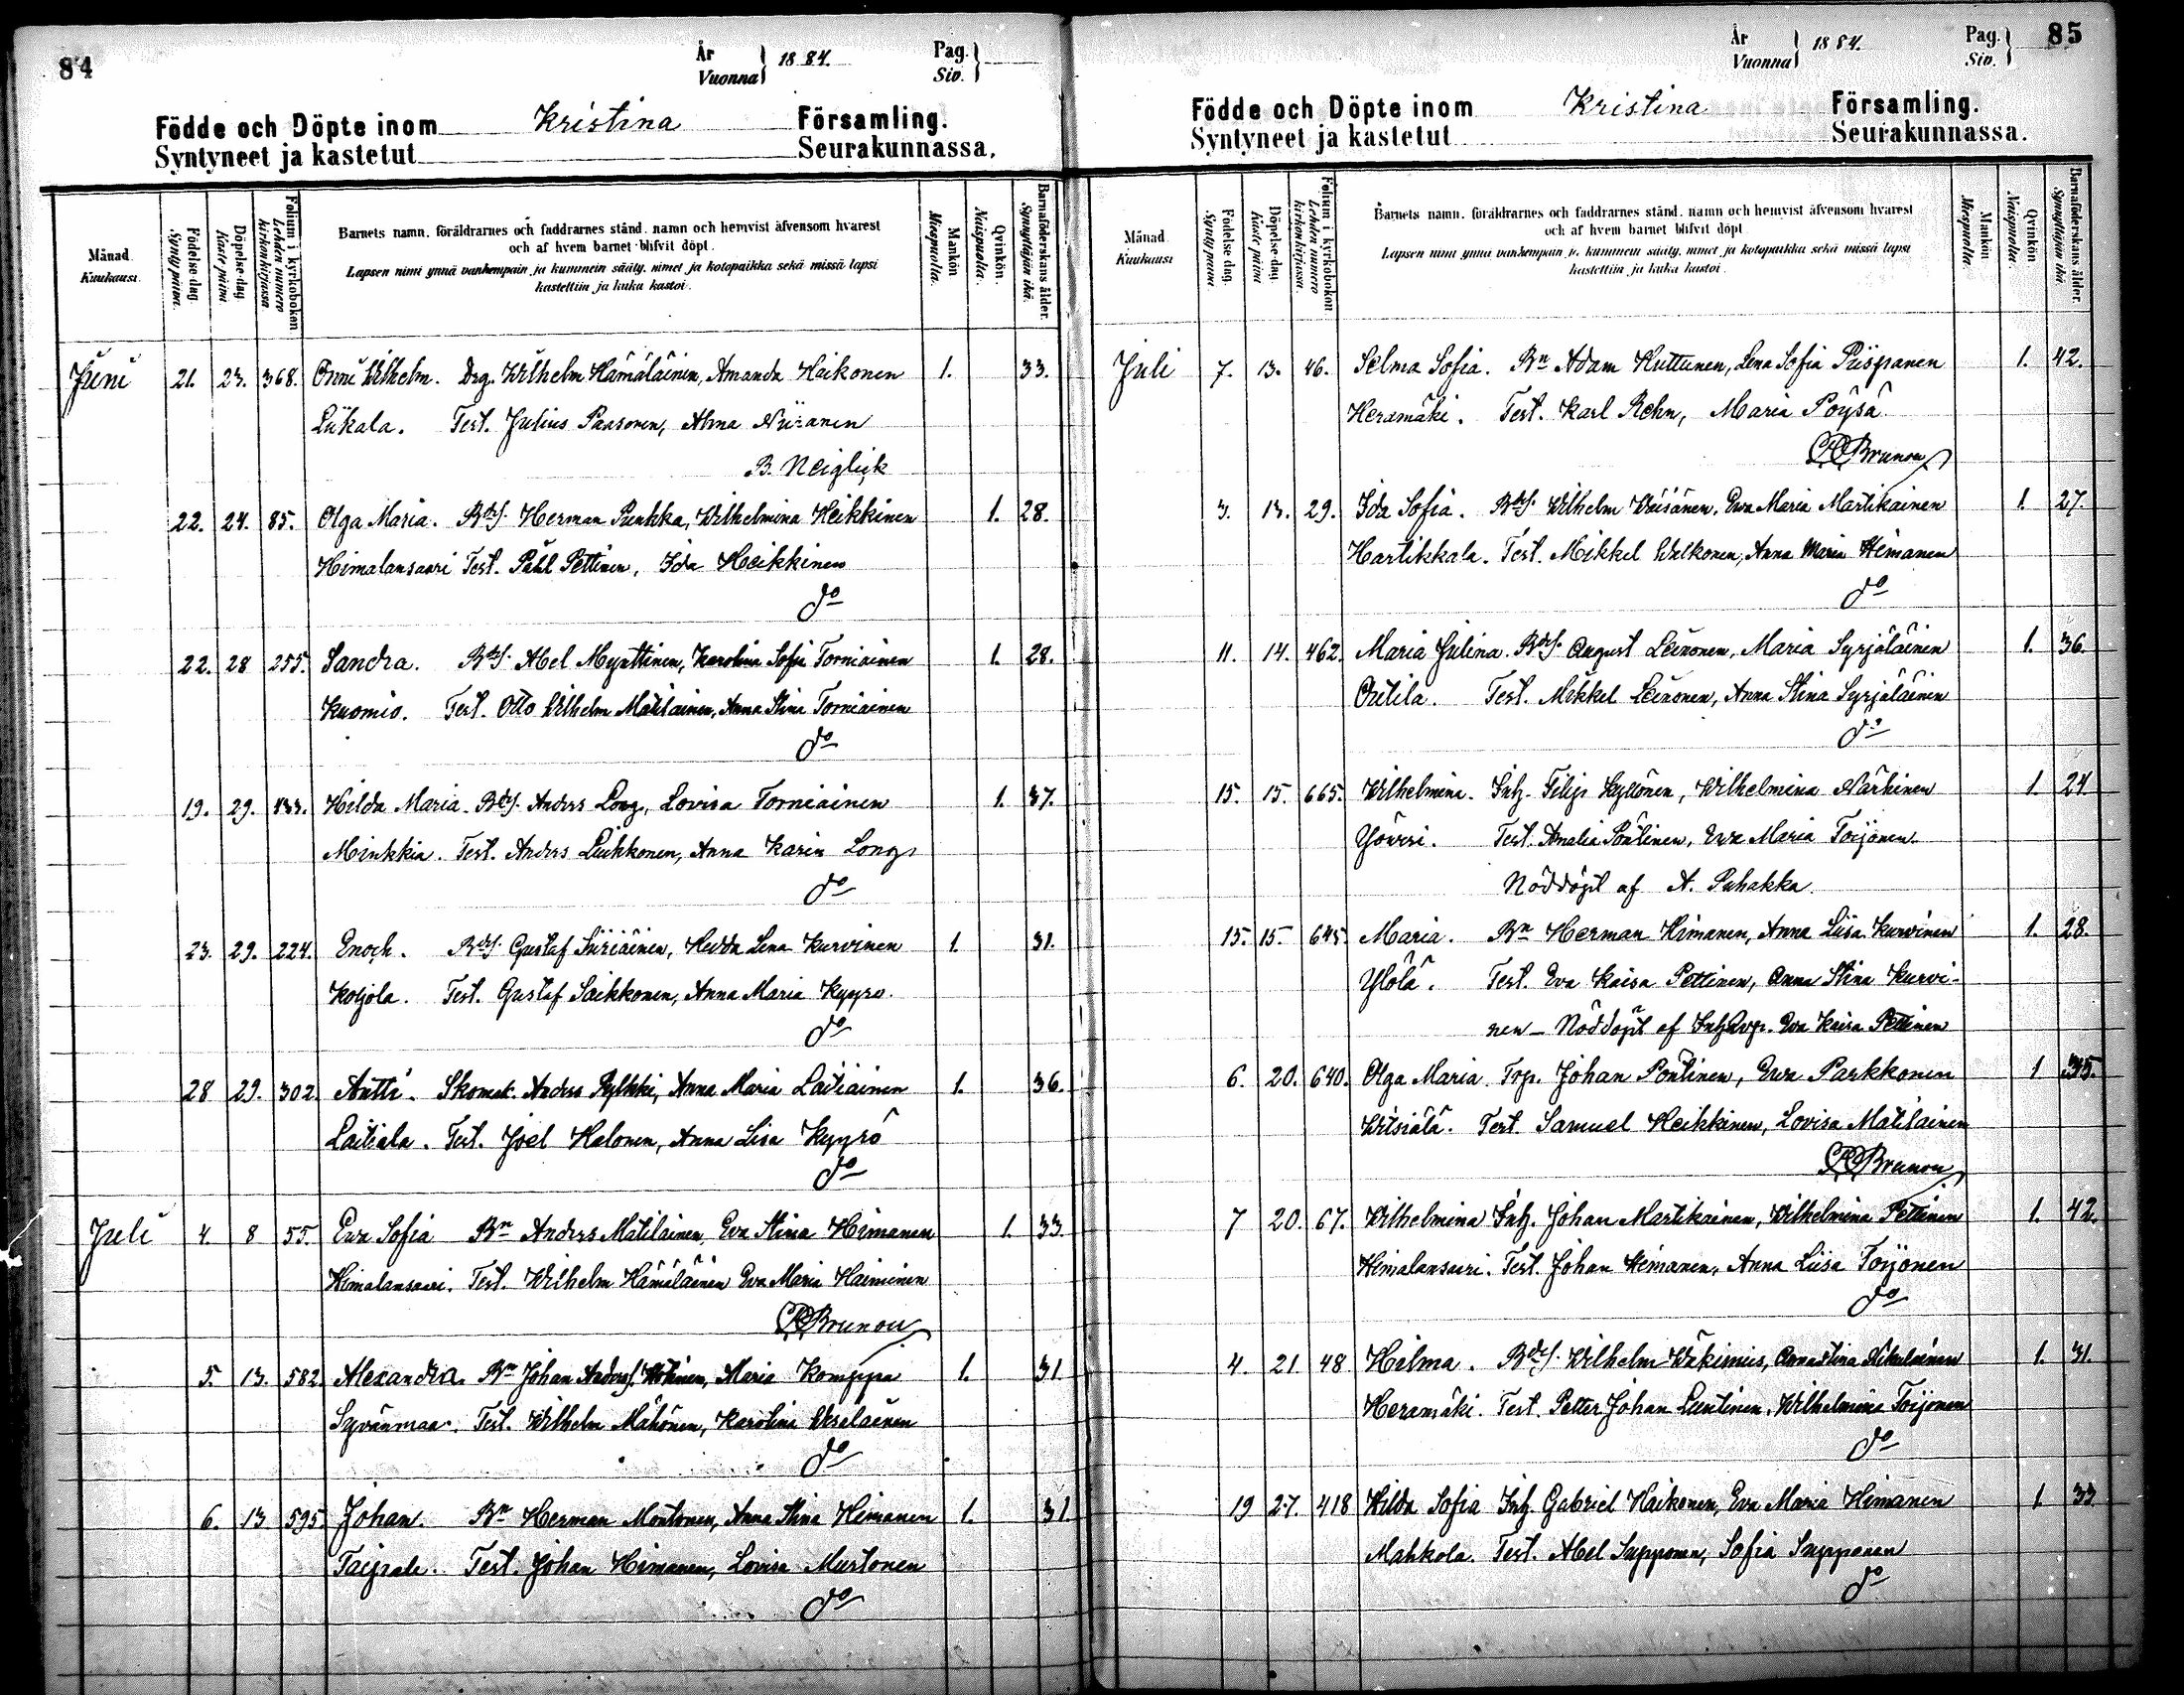 84
År
Vuonna } 1884.
Pag.
Siv. }
Födde och Döpte inom Kristina Församling.
Syntyneet ja kastetut Seurakunnassa.
Månad.
Kuukausi.
Födelse-dag.
Synty päivä.
Döpelse-dag.
Kaste päivä
Folium i kyrkoboken
Lehden numero kirkonkirjassa
Barnets namn, föräldrarnes och faddrarnes stånd, namn och hemvist äfvensom hvarest
och af hvem barnet blifvit döpt.
Lapsen nimi ynnä vanhempain ja kummein sääty, nimet ja kotopaikka sekä missä lapsi
kastettiin ja kuka kastoi.
Mankön
Miespuolta.
Qvinkön.
Naispuolta.
Barnaföderskans ålder.
Synnyttäjän ikä.
Juni 21. 23. 368. Onni Wilhelm. Drg. Wilhelm Hämäläinen, Amanda Haikonen 1. 33.
Liikala. Test. Julius Paasonen, Alma Niiranen
B. Neiglick
22. 24. 85. Olga Maria. Bdes. Herman Punkka, Wilhelmina Heikkinen 1. 28.
Himalansaari Test. Påhl Pettinen, Ida Heikkinen
do
22. 28 255. Sandra. Bdes. Abel Mynttinen, Karolina Sofia Torniainen 1. 28.
Kuomio. Test. Otto Wilhelm Matilainen, Anna Stina Torniainen
do
19. 29. 133. Hilda Maria. Bdes. Anders Long, Lovisa Torniainen 1. 37.
Minkkia. Test. Anders Liukkonen, Anna Karin Long
do
23. 29. 224. Enoch. Bdes. Gustaf Siiriäinen, Hedda Lena Kurvinen 1. 31.
Koljola. Test. Gustaf Saikkonen, Anna Maria Kyyrö.
do
28 29. 302 Antti. Skomak. Anders Pylkki, Anna Maria Laitiainen 1. 36.
Laitiala. Test. Joel Halonen, Anna Lisa Kyyrö
do
Juli 4. 8 55. Eva Sofia Bn Anders Matilainen, Eva Stina Himanen 1. 33.
Himalansaari. Test. Wilhelm Hämäläinen Eva Maria Haiminen
Brunou
5. 13. 582. Alexandra. Bn Johan Anderss. Maria Komppa 1. 31
Syvänmaa. Test. Wilhelm Mähönen, Karolina Ukselainen
do
6. 13 595 Johan. Bn Herman Montonen, Anna Stina Himanen 1. 31.
Taipale. Test. Johan Himanen, Lovisa Murtonen
do
År
Vuonna } 1884.
Pag.
Siv. }
85
Födde och Döpte inom Kristina Församling.
Syntyneet ja kastetut Seurakunnassa.
Månad
Kuukausi
Födelse dag.
Synty päivä.
Döpelse-dag.
Kaste päivä
Folium i kyrkoboken
Lehden numero kirkonkirjassa.
Barnets namn, föräldrarnes och faddrarnes stånd, namn och hemvist äfvensom hvarest
och af hvem barnet blifvit döpt
Lapsen nimi ynnä vanhempain ja kummein sääty, nimet ja kotopaikka sekä missä lapsi
kastettiin ja kuka kastoi.
Mankön
Miespuolta.
Qvinkön
Naispuolta.
Barnaföderskans ålder.
Synnyttäjän ikä.
Juli 7. 13. 46. Selma Sofia. Bn Adam Huttunen, Lena Sofia Piispanen 1. 42.
Heramäki. Test. Karl Rehn, Maria Pöysä
Brunou
3. 13. 29. Ida Sofia. Bdes. Wilhelm Wäisänen, Eva Maria Martikainen 1. 27.
Hartikkala. Test. Mikkel Walkonen, Anna Maria Himanen
do
11. 14. 462. Maria Julina. Bdes. August Leinonen, Maria Syrjäläinen 1. 36.
Ortila. Test. Mikkel Leinonen, Anna Stina Syrjäläinen
do
15. 15. 665. Wilhelmina. Inh. Filip Kyllönen, Wilhelmina Närhinen 1. 24.
Yövesi. Test. Amalia Pöntinen, Eva Maria Toijonen.
Nöddöpt af A. Puhakka.
15. 15. 645. Maria. Bn Herman Himanen, Anna Liisa Kurvinen 1. 28.
Ylölä. Test. Eva Kaisa Pettinen, Anna Stina Kurvi-
nen – Nöddöpt af Eva Kaisa Pettinen
6. 20. 640. Olga Maria Trp. Johan Pöntinen, Eva Parkkonen 1 35.
Witsiälä. Test. Samuel Heikkinen, Lovisa Matilainen
Brunou
7 20. 67. Wilhelmina Inh. Johan Martikainen, Wilhelmina Pettinen 1. 42.
Himalansaari. Test. Johan Himanen, Anna Liisa Toijonen
do
4. 21. 48 Hilma. Bdes. Wilhelm Annastina Nikulainen 1. 31.
Heramäki. Test. Petter Johan Luntinen, Wilhelmina Toijonen
do
19 27. 418 Hilda Sofia Inh. Gabriel Haikonen, Eva Maria Himanen 1. 33
Mahkola. Test. Abel Supponen, Sofia Supponen
do